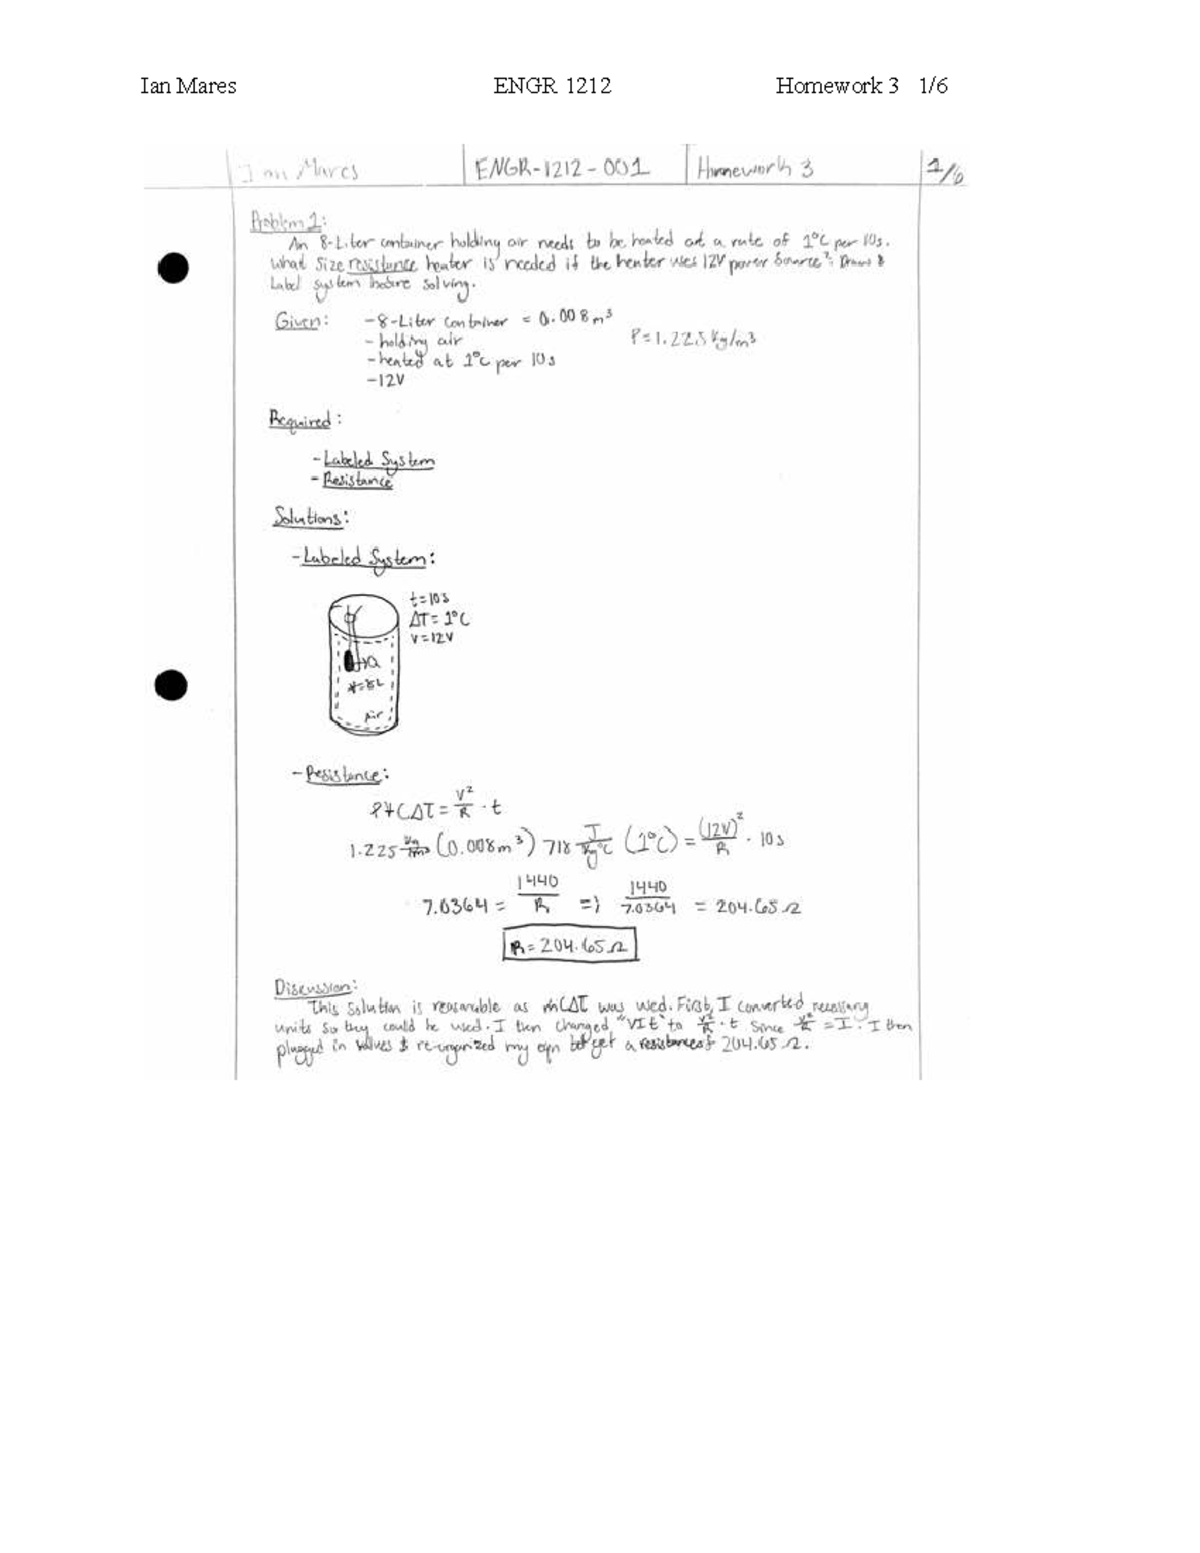 Ian Mares ENGR 1212 Homework 3 1/6
Ian Mares ENGR-1212-001 Homework 3 1/6
Problem 1:
An 8-Liter container holding air needs to be heated at a rate of 1°C per 10s.
What size resistance heater is needed if the heater uses 12V power source? Draw &
Label system before solving.
Given: -8-Liter container = 0.008m³
- holding air ρ=1.225 kg/m³
-heated at 1°C per 10s
-12V
Required:
-Labeled System
-Resistance
Solutions:
-Labeled System:
t=10s
ΔT=1°C
V=12V
Q
V=8L
Air
-Resistance:
ρVCΔT = V²/R · t
1.225 kg/m³ (0.008m³) 718 J/kg°C (1°C) = (12V)²/R · 10s
7.0364 = 1440/R => 1440/7.0364 = 204.65Ω
R = 204.65Ω
Discussion:
This solution is reasonable as mCΔT was used. First, I converted necessary
units so they could be used. I then changed "VIt" to V²/R · t since V/R = I. I then
plugged in values & re-organized my eqn to get a resistance of 204.65Ω.